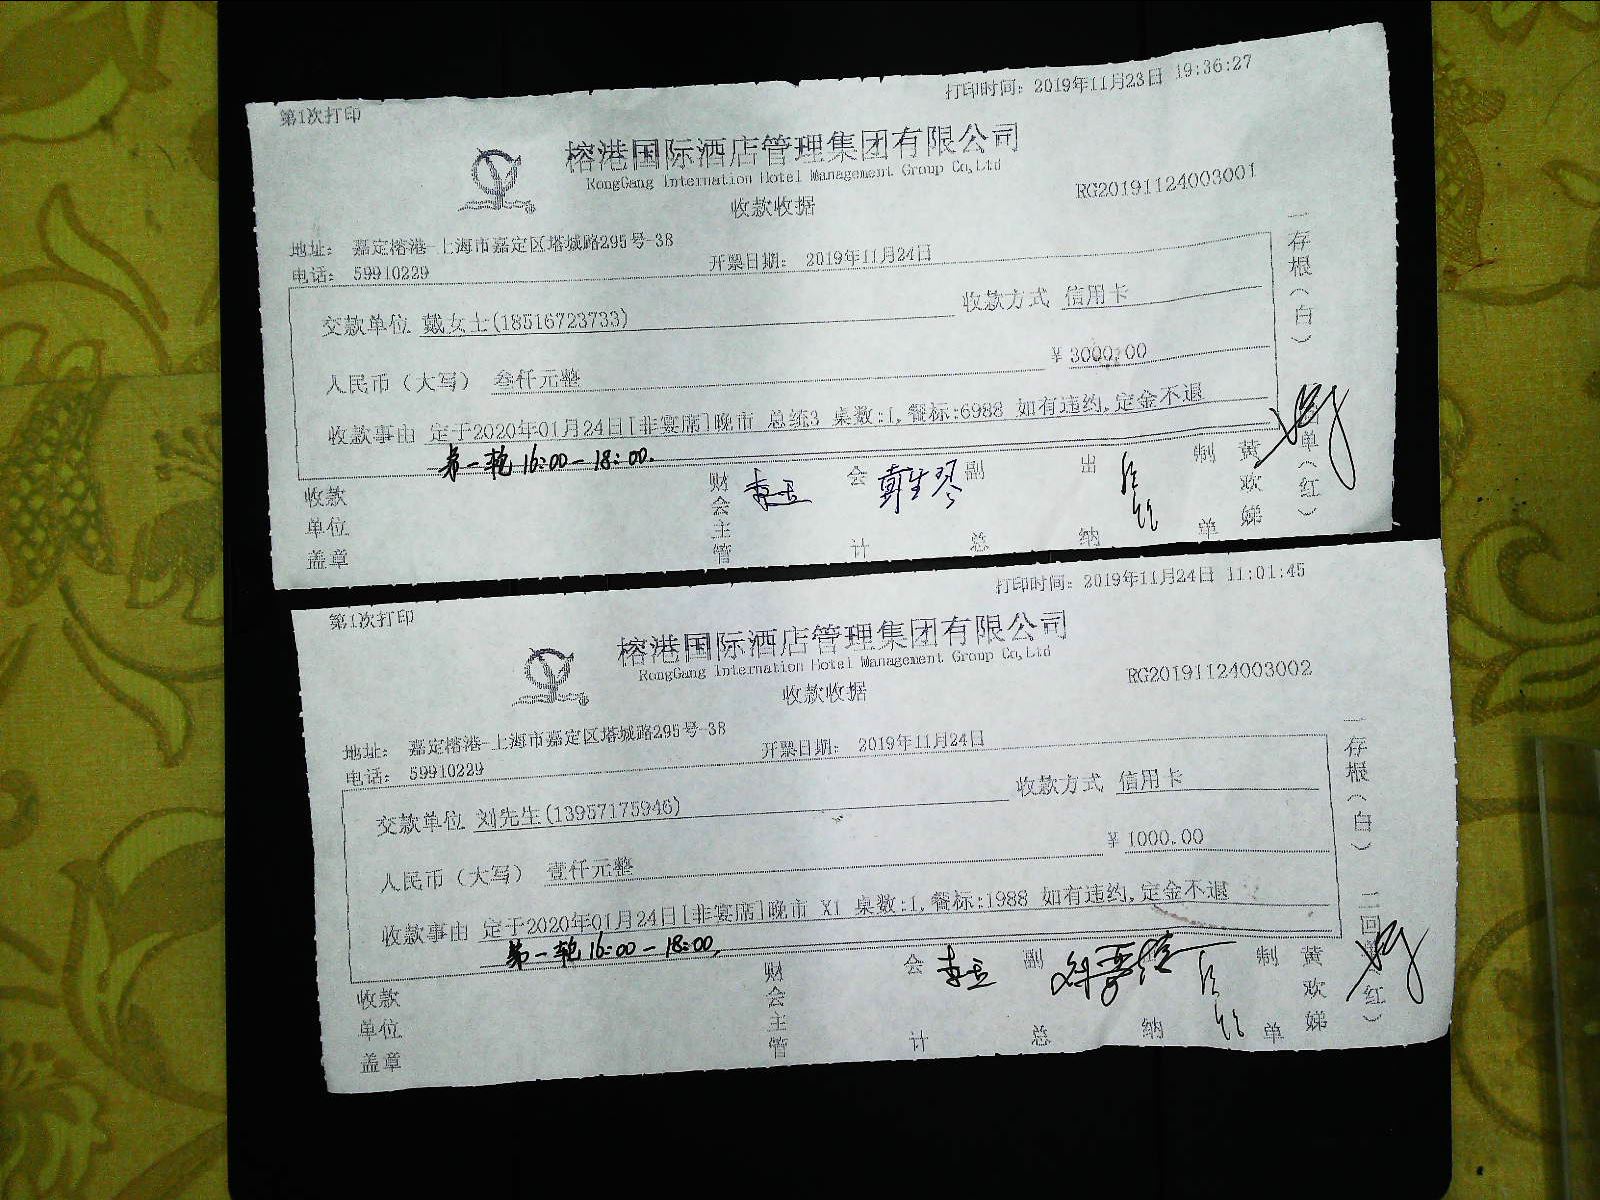 第1次打印
打印时间: 2019年11月23日 19:36:27
榕港国际酒店管理集团有限公司
RongGang Internation Hotel Management Group Co,Ltd
收款收据
RG20191124003001
地址: 嘉定榕港-上海市嘉定区塔城路295号-38
电话: 59910229
开票日期: 2019年11月24日
交款单位 戴女士(18516723733)
收款方式 信用卡
人民币（大写） 叁仟元整
¥ 3000.00
收款事由 定于2020年01月24日[非宴席]晚市 总统3 桌数:1,餐标:6988 如有违约,定金不退
第一轮 16:00-18:00.
收款单位盖章
财会主管
会计
副总
出纳
制单
黄欢娣
一存根（白）
单（红）
第1次打印
打印时间: 2019年11月24日 11:01:45
榕港国际酒店管理集团有限公司
RongGang Internation Hotel Management Group Co,Ltd
收款收据
RG20191124003002
地址: 嘉定榕港-上海市嘉定区塔城路295号-38
电话: 59910229
开票日期: 2019年11月24日
交款单位 刘先生(13957175946)
收款方式 信用卡
人民币（大写） 壹仟元整
¥ 1000.00
收款事由 定于2020年01月24日[非宴席]晚市 X1 桌数:1,餐标:1988 如有违约,定金不退
第一轮 16:00-18:00,
收款单位盖章
财会主管
会计
副总
纳
制单
黄欢娣
一存根（白）
二回
红）